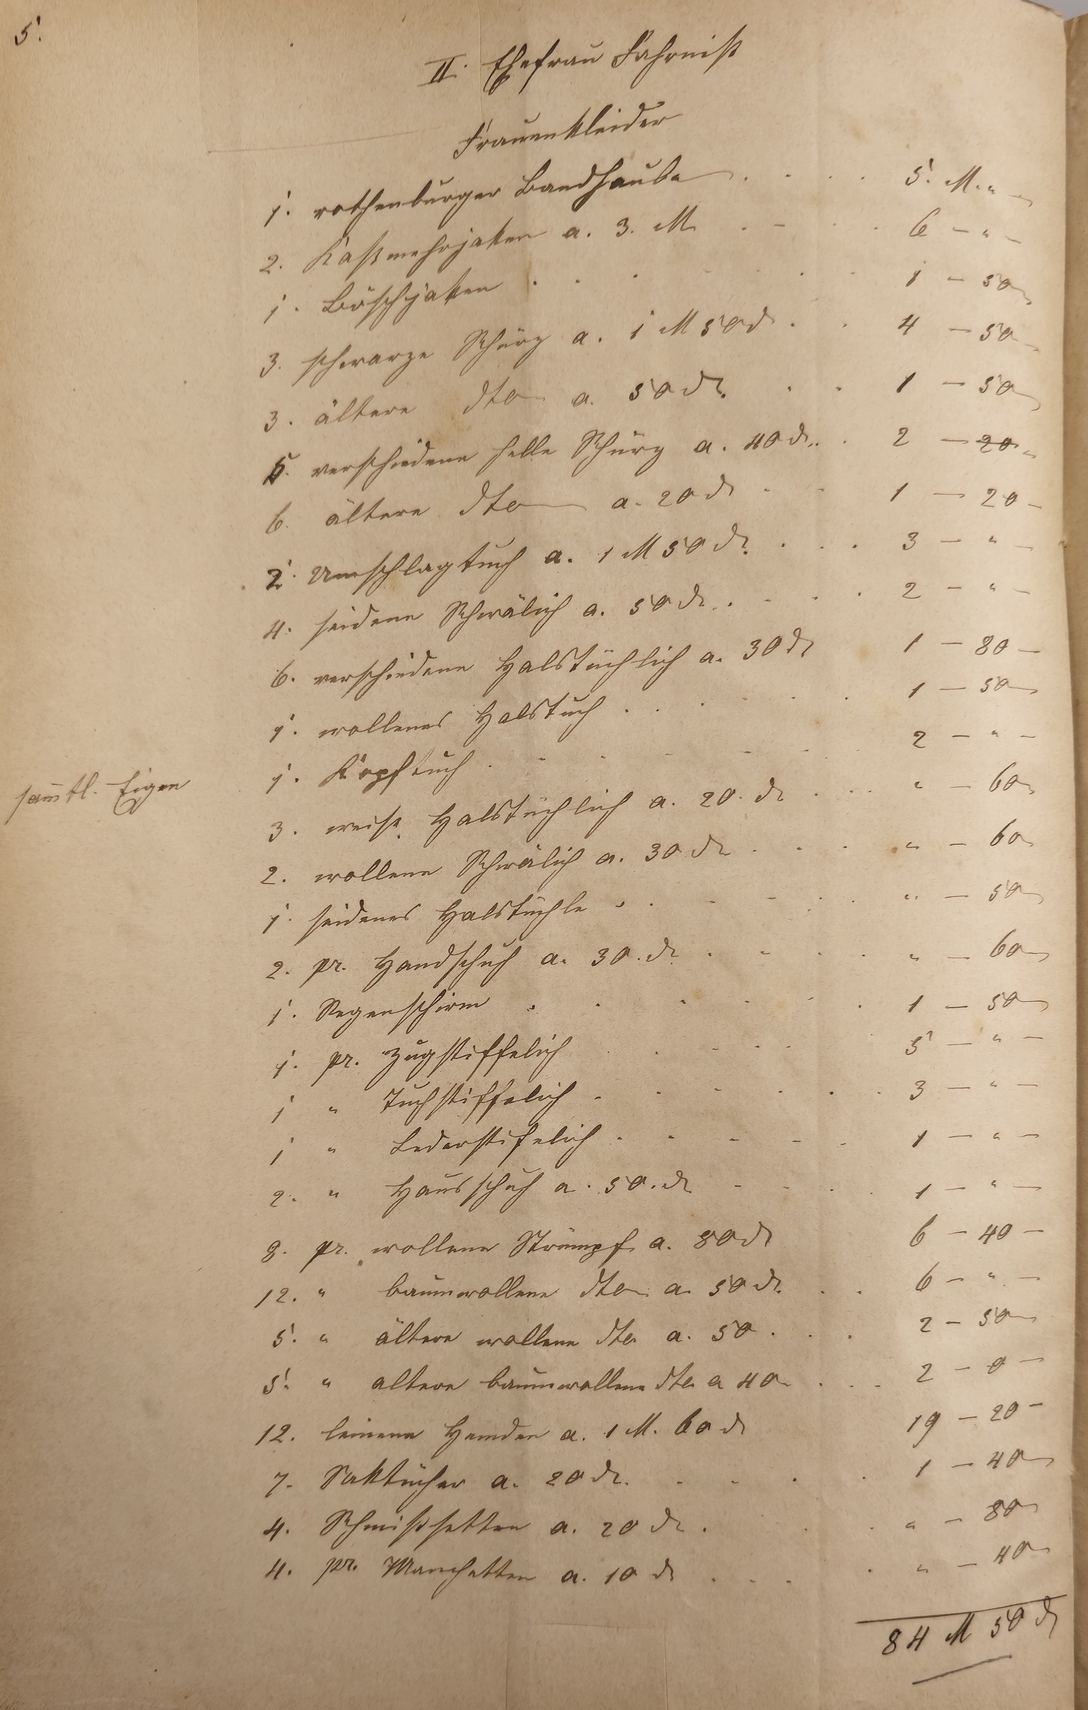 5.
II. Ehefrau Fahrniß
Frauenkleider
1. rothenburger Bandhaube . . . . 5. M. "
2. Kaßmehrjaken a. 3. M . . . 6 – " –
1. Böschjaken . . . 1 – 50
3. schwarze Schürz a. 1 M 50 ₰ . . 4 – 50
3. ältere dto a. 50 ₰. . . 1 – 50
5. verschiedene helle Schürz a. 40 ₰. . 2 – 20 "
6. ältere dto a. 20 ₰ . . 1 – 20 –
2. Umschlagtuch a. 1 M 50 ₰. . . . 3 – " –
4. seidene Schwälich a. 50 ₰. . . . 2 – " –
6. verschiedene Halstüchlich a. 30 ₰ 1 – 80 –
1. wollenes Halstuch . . . . 1 – 50
1. Kopftuch . . . . 2 – " –
samtl. Eigen
3. weise Halstüchlich a. 20. ₰ . . . " – 60
2. wollene Schwälich a. 30 ₰ . . . " – 60
1. seidenes Halstüchle . . . . " – 50
2. pr. Handschuh a. 30. ₰. . . . " – 60
1. Regenschirm . . . . 1 – 50
1. pr. Zugstiffelich . . . 5 – " –
1 " Tuchstiffelich . . . . 3 – " –
1 " Lederstifelich . . . . 1 – " –
2. " Hausschuh a. 50. ₰ . . . 1 – " –
8. pr. wollene Strümpf a. 80 ₰ 6 – 40 –
12. " baumwollene dto a. 50 ₰. . . 6 – " –
5. " ältere wollene dto a. 50 . . . 2 – 50
5. " altere baumwollene dto a 40 . . . 2 – 0 –
12. leinene Hemden a. 1 M. 60 ₰ 19 – 20 –
7. Saktücher a. 20 ₰. . . . 1 – 40
4. Schmißsetten a. 20 ₰. . . " – 80
4. pr. Manschetten a. 10 ₰ . . . " – 40
84 M 50 ₰